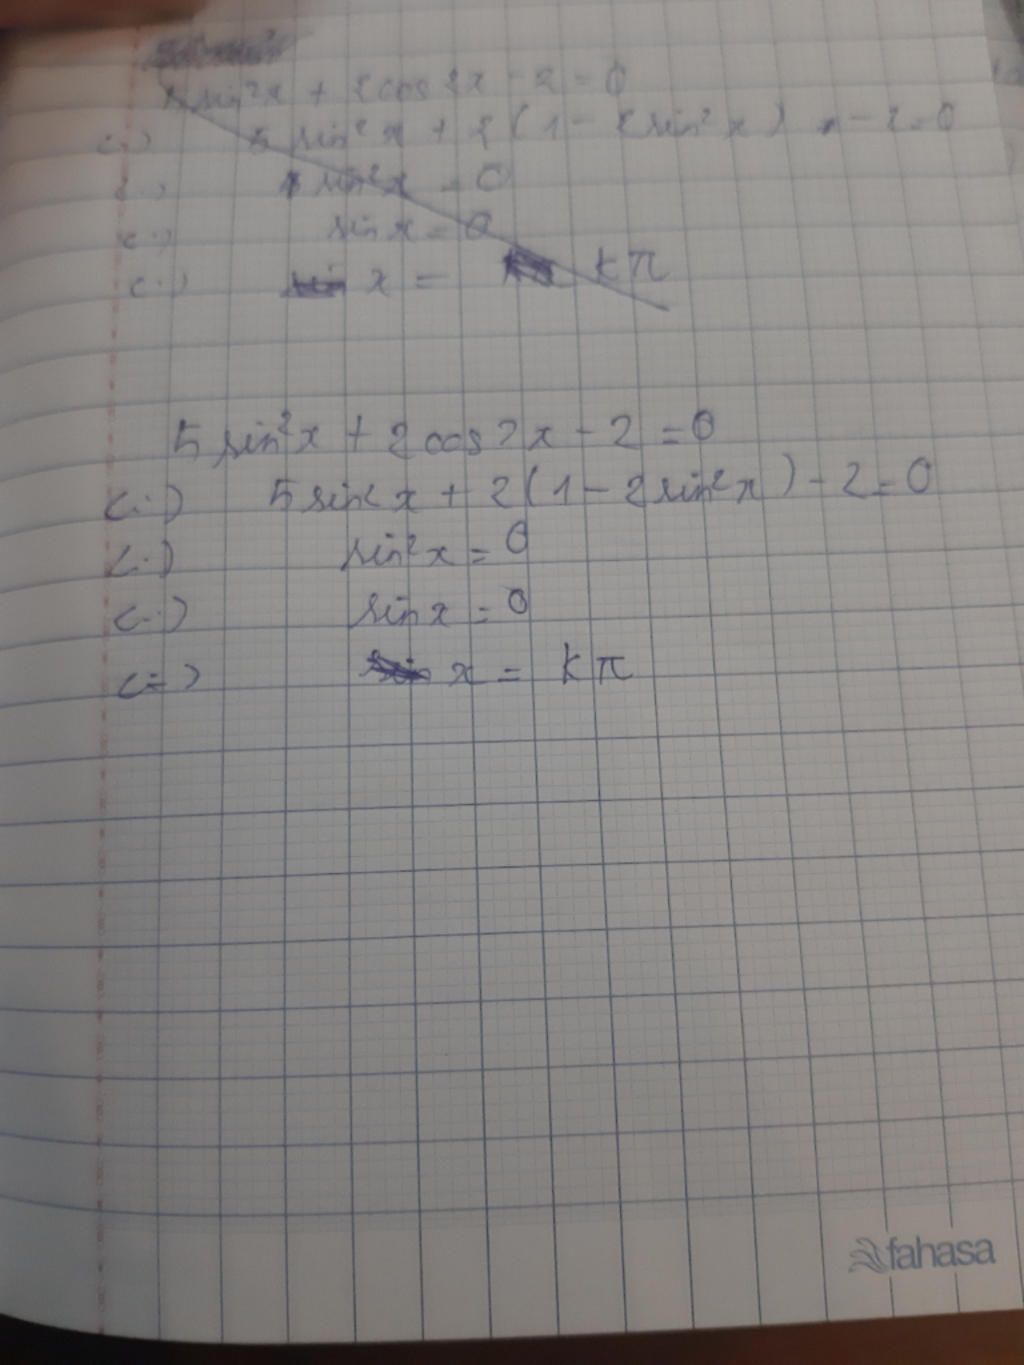 5 sin²x + 2cos2x - 2 = 0
<=> 5 sin²x + 2(1 - 2sin²x) - 2 = 0
<=> sin²x = 0
<=> sin x = 0
<=> x = kπ
5 sin²x + 2cos2x - 2 = 0
<=> 5 sin²x + 2(1 - 2sin²x) - 2 = 0
<=> sin²x = 0
<=> sin x = 0
<=> x = kπ
fahasa